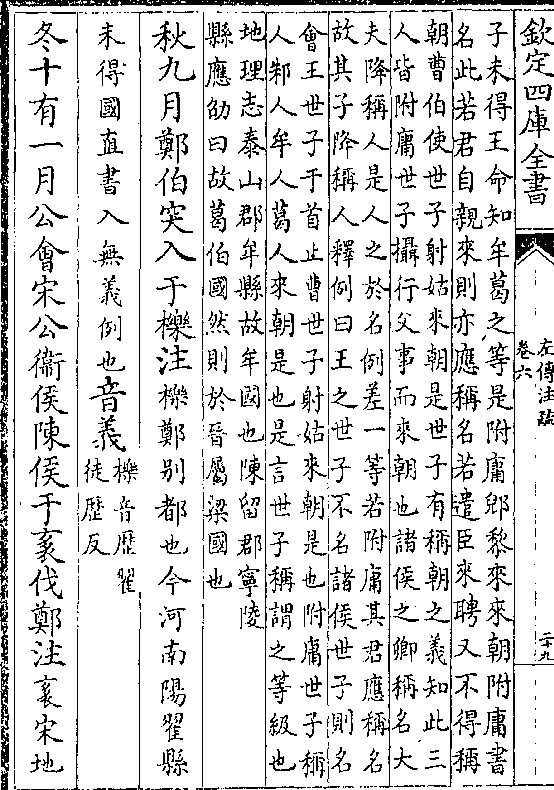 欽定四庫全書
左傳注疏
卷六
二十九
子未得王命知牟葛之等是附庸郳黎來來朝附庸書
名此若君自親來則亦應稱名若遣臣來聘又不得稱
朝曹伯使世子射姑來朝是世子有稱朝之義知此三
人皆附庸世子攝行父事而來朝也諸侯之卿稱名大
夫降稱人是人之於名例差一等若附庸其君應稱名
故其子降稱人釋例曰王之世子不名諸侯世子則名
會王世子于首止曹世子射姑來朝是也附庸世子稱
人邾人牟人葛人來朝是也是言世子稱謂之等級也
地理志泰山郡牟縣故牟國也陳留郡寧陵
縣應劭曰故葛伯國然則於晉屬梁國也
秋九月鄭伯突入于櫟注櫟鄭别都也今河南陽翟縣
未得國直書入無義例也音義櫟音歴翟
徒歴反
冬十有一月公會宋公衞侯陳侯于袤伐鄭注袤宋地